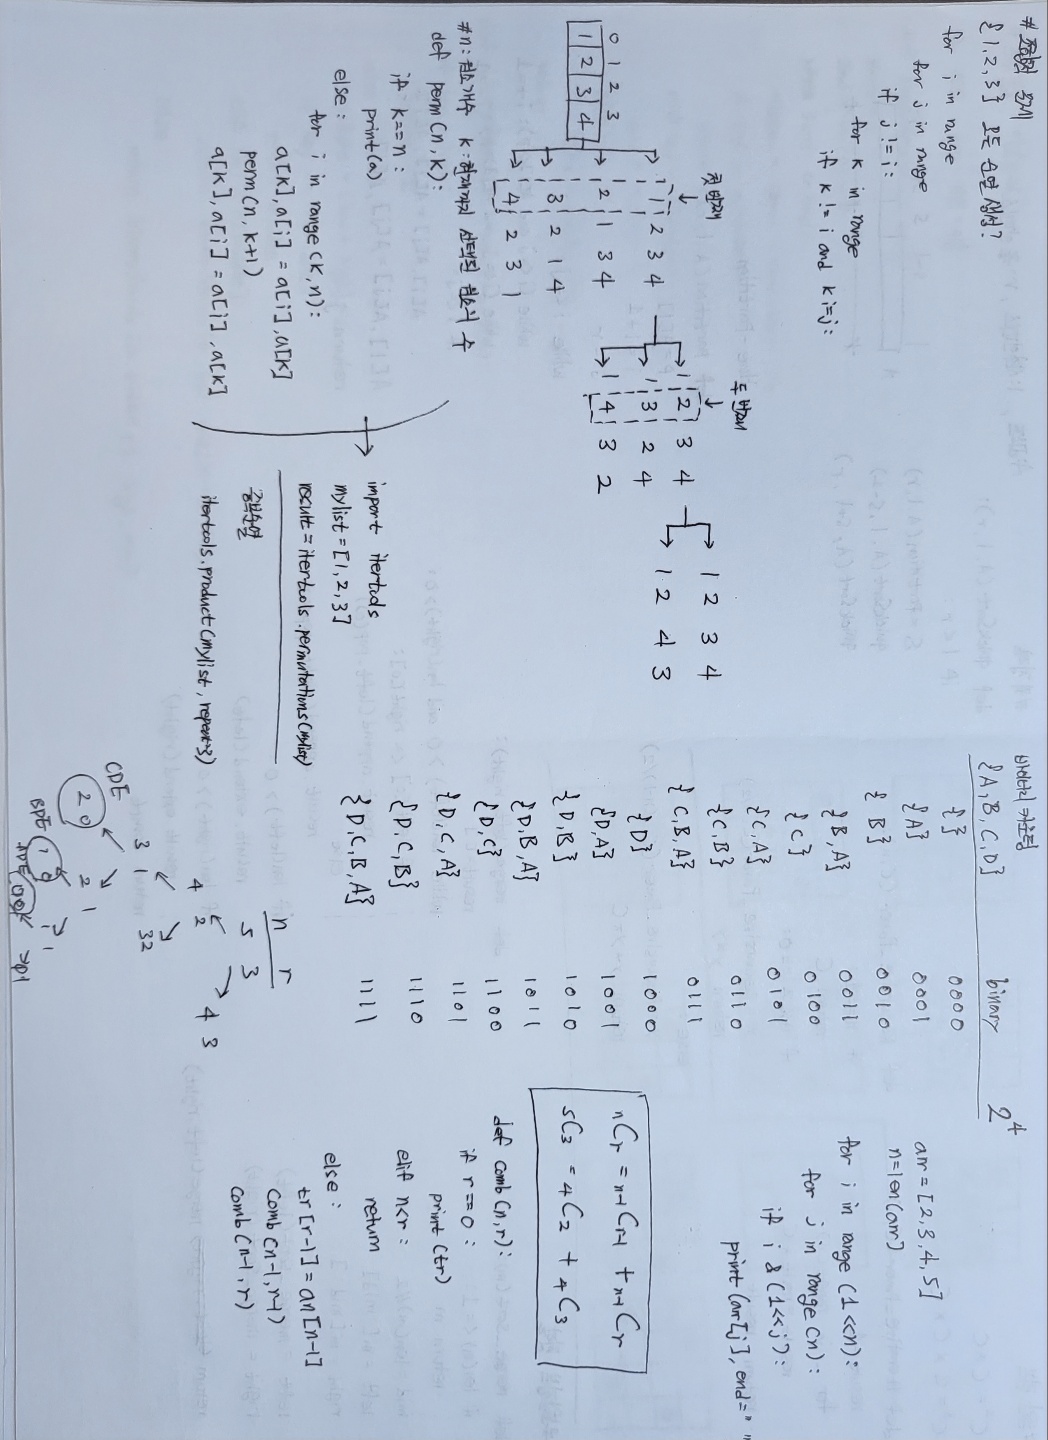 # 조합적 문제
{1,2,3} 모든 순열 생성?
for i in range
for j in range
if j != i:
for k in range
if k != i and k != j:
첫번째
두번째
0 1 2 3
1 2 3 4
1 2 3 4
2 1 3 4
3 2 1 4
4 2 3 1
1 2 3 4
1 3 2 4
1 4 3 2
1 2 3 4
1 2 4 3
#n: 원소개수 k: 현재까지 선택된 원소의 수
def perm(n, k):
if k==n:
print(a)
else:
for i in range(k,n):
a[k], a[i] = a[i], a[k]
perm(n, k+1)
a[k], a[i] = a[i], a[k]
import itertools
mylist = [1,2,3]
result = itertools.permutations(mylist)
중복순열
itertools.product(mylist, repeat=3)
바이너리 카운팅
{A,B,C,D} binary 2^4
{} 0000
{A} 0001
{B} 0010
{B,A} 0011
{C} 0100
{C,A} 0101
{C,B} 0110
{C,B,A} 0111
{D} 1000
{D,A} 1001
{D,B} 1010
{D,B,A} 1011
{D,C} 1100
{D,C,A} 1101
{D,C,B} 1110
{D,C,B,A} 1111
arr = [2,3,4,5]
n=len(arr)
for i in range (1<<n):
for j in range(n):
if i & (1<<j):
print(arr[j], end=" "
nCr = n-1Cr-1 + n-1Cr
5C3 = 4C2 + 4C3
def comb(n,r):
if r==0:
print(tr)
elif n<r:
return
else:
tr[r-1] = an[n-1]
comb(n-1, r-1)
comb(n-1, r)
n r
5 3
4 2
4 3
3 1
3 2
CDE
2 0
2 1
BDE
1 0
1 1
ADE
0 0
0 1